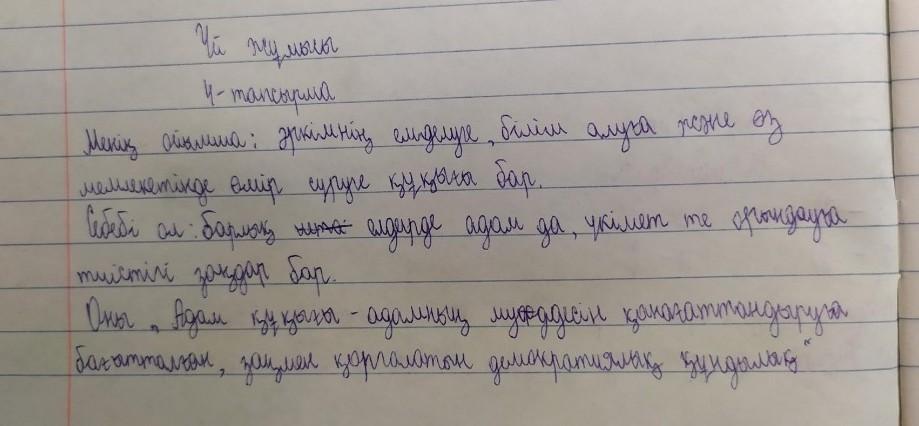 Үй жұмысы
4-тапсырма
Менің ойымша: әркімнің емделуге, білім алуға және өз
мемлекетінде өмір сүруге құқығы бар.
Себебі ол: барлық елдерде адам да, үкімет те орындауға
тиістігі заңдар бар.
Оны „Адам құқығы - адамның мүддесін қанағаттандыруға
бағытталған, заңмен қорғалатын демократиялық құндылық“